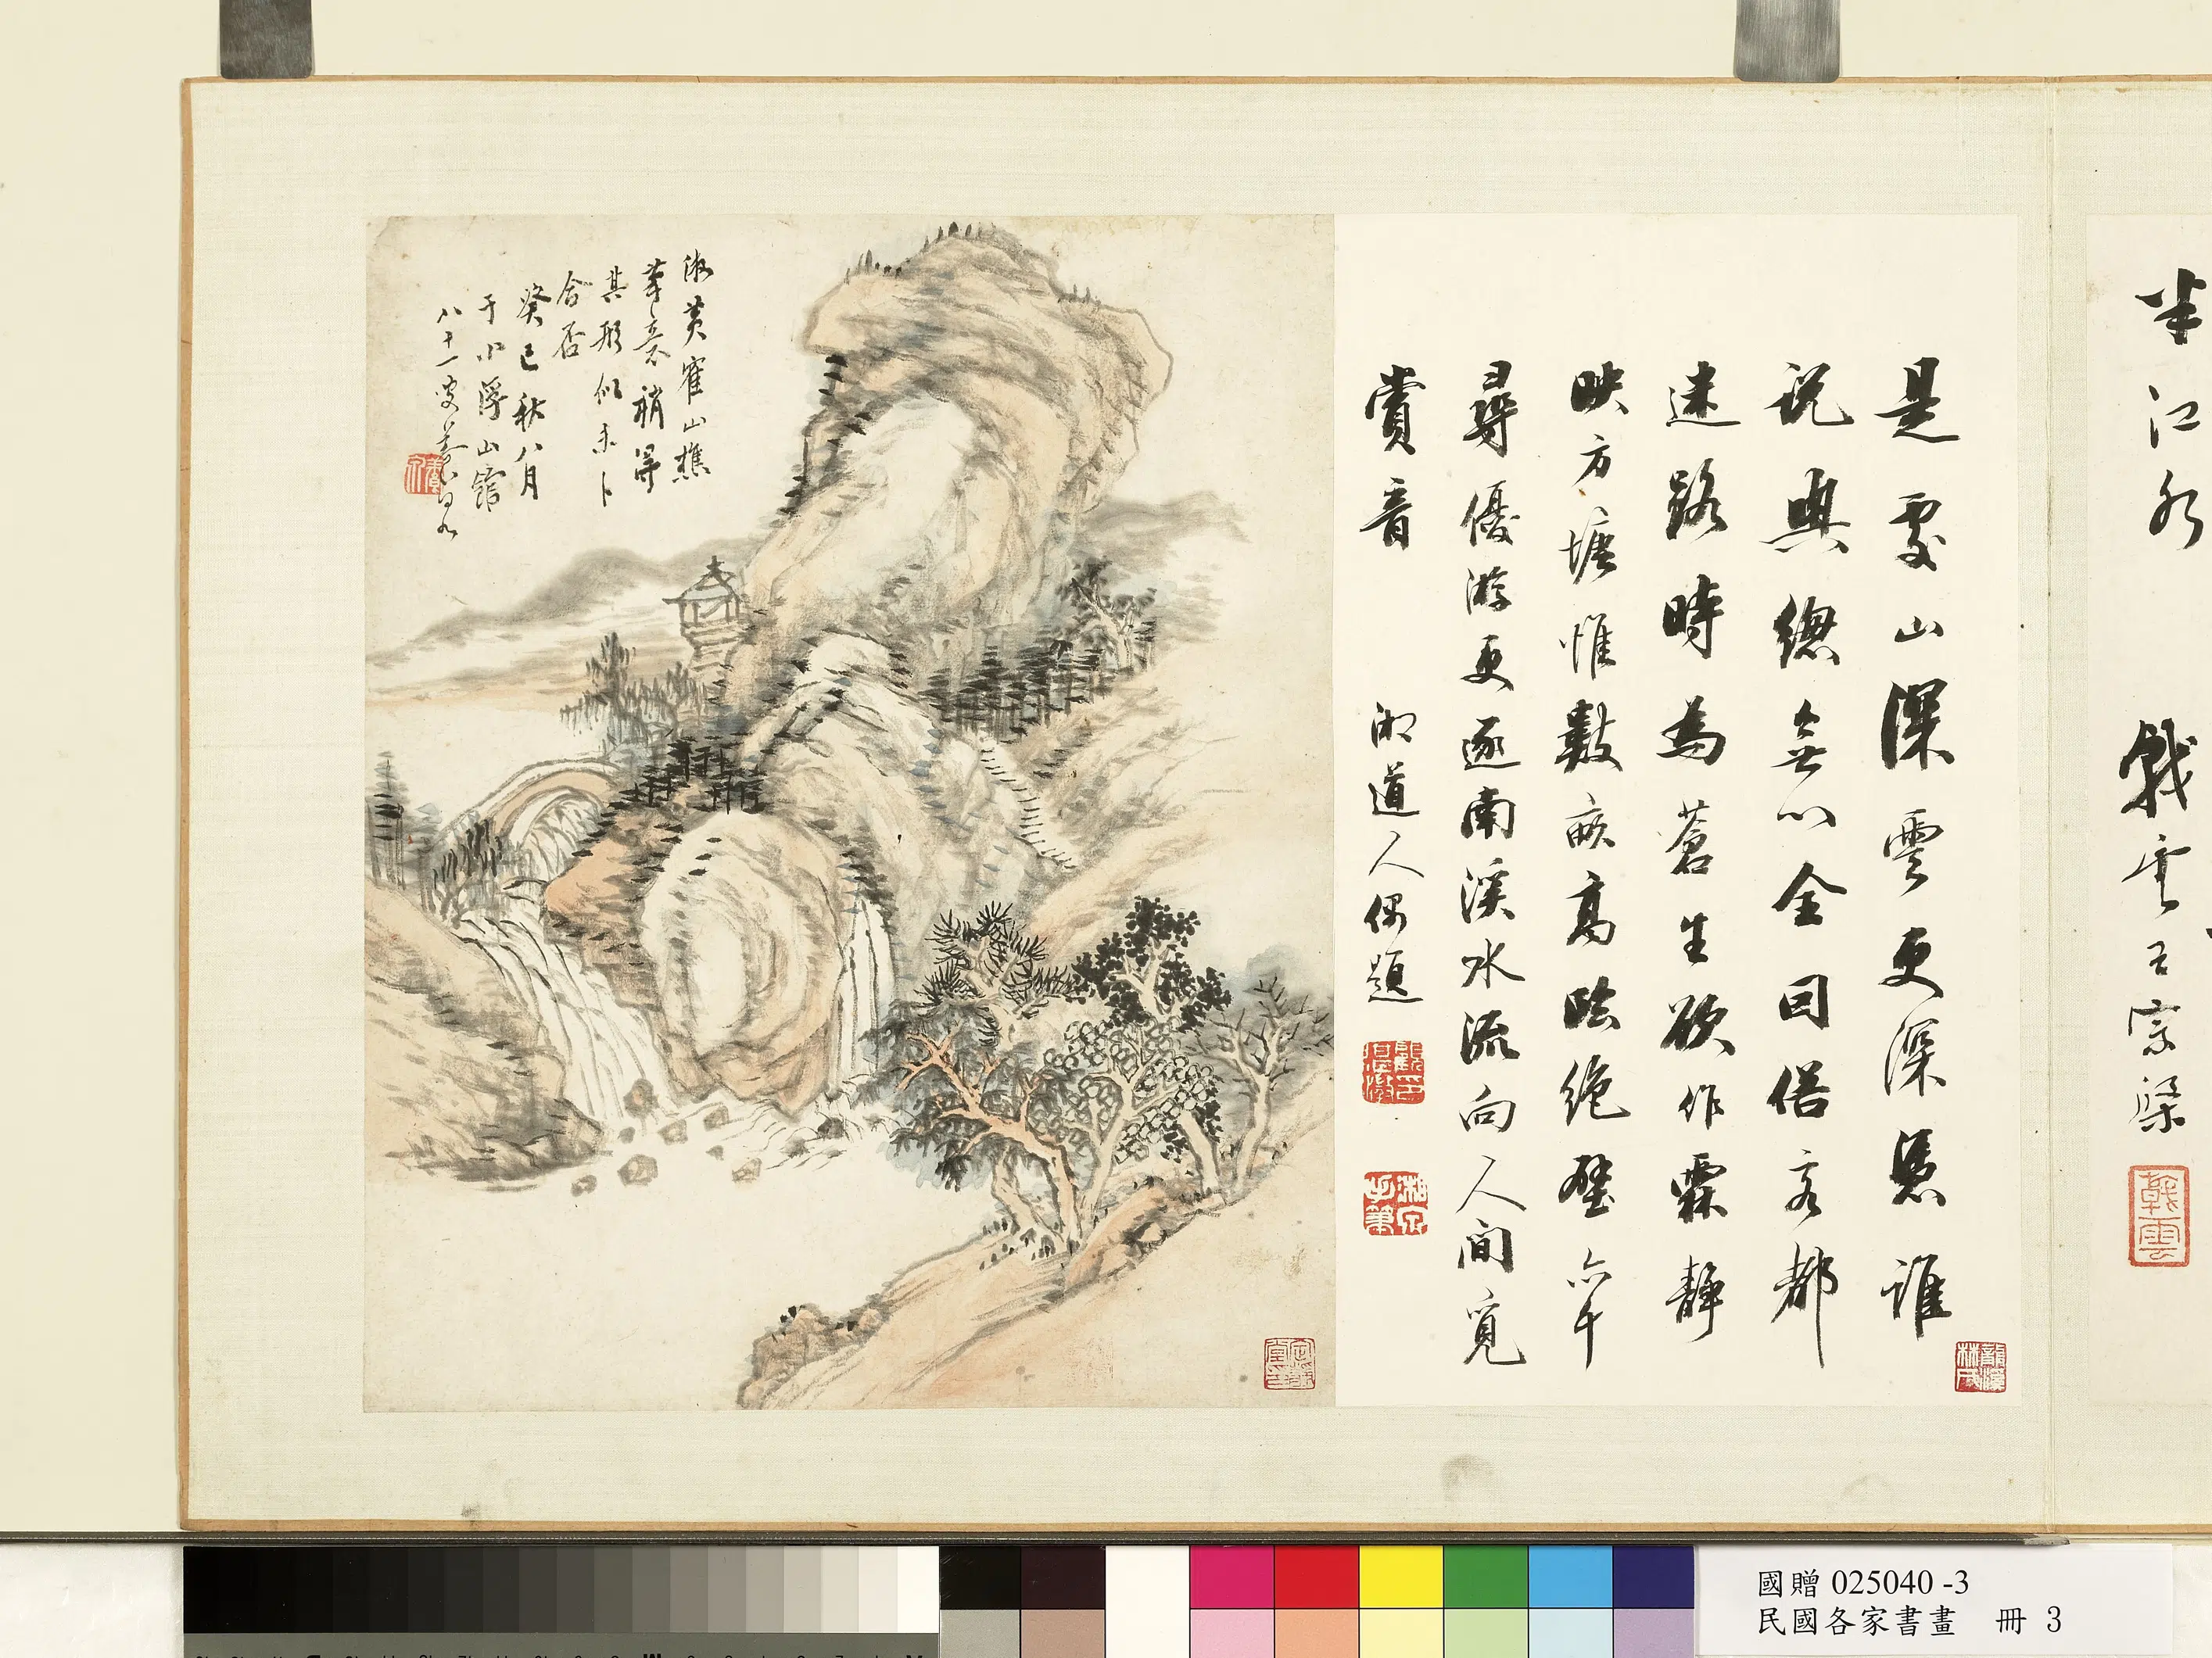 半江水
戟雲呂宗
戟雲
是處山深雲更深憑誰
說與總無心全回儋客都
迷路時為蒼生欲作霖靜
映方塘惟數畝高臨絕壁六千
尋優游更逐南溪水流向人間覓
賞音
道人偶題
黃鶴山樵
筆意不稍得
其形似未卜
合否
癸巳秋八月
于小浮山館
八十一叟
國贈 025040 -3
民國各家書畫 冊 3